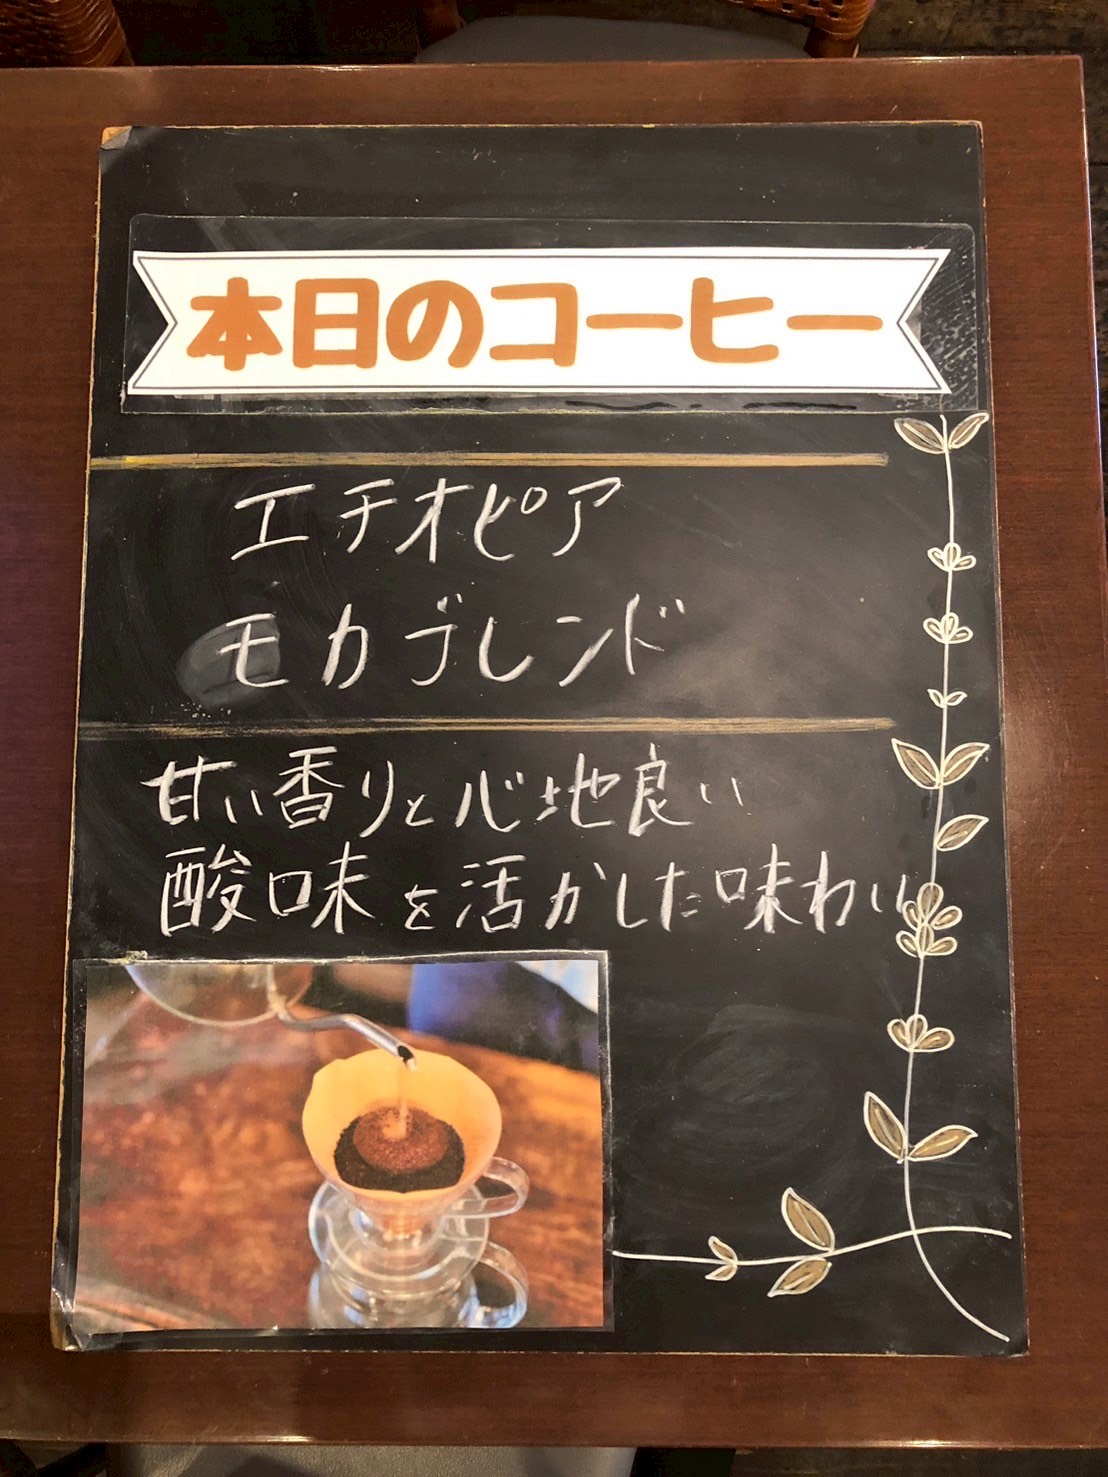 本日のコーヒー
エチオピア
モカブレンド
甘い香りと心地良い
酸味を活かした味わい